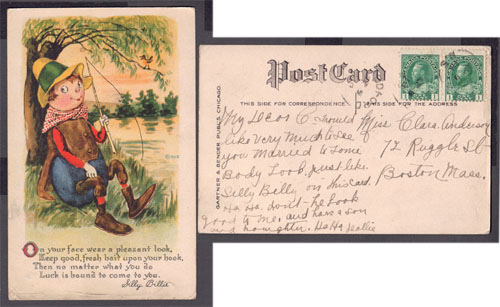 On your face wear a pleasant look,
Keep good, fresh bait upon your hook,
Then no matter what you do
Luck is bound to come to you.
Silly Billie
Post Card
THIS SIDE FOR CORRESPONDENCE
THIS SIDE FOR THE ADDRESS
GARTNER & BENDER, PUBLS. CHICAGO.
My Dear C. Would
like very Much to see
you Married to Some
Body Look just like
Silly Billy on this card.
Ha Ha. don't he look
good to Me. and have a son
and daughter. Ha Ha
Miss Clara Anderson
72 Ruggle St
Boston Mass.